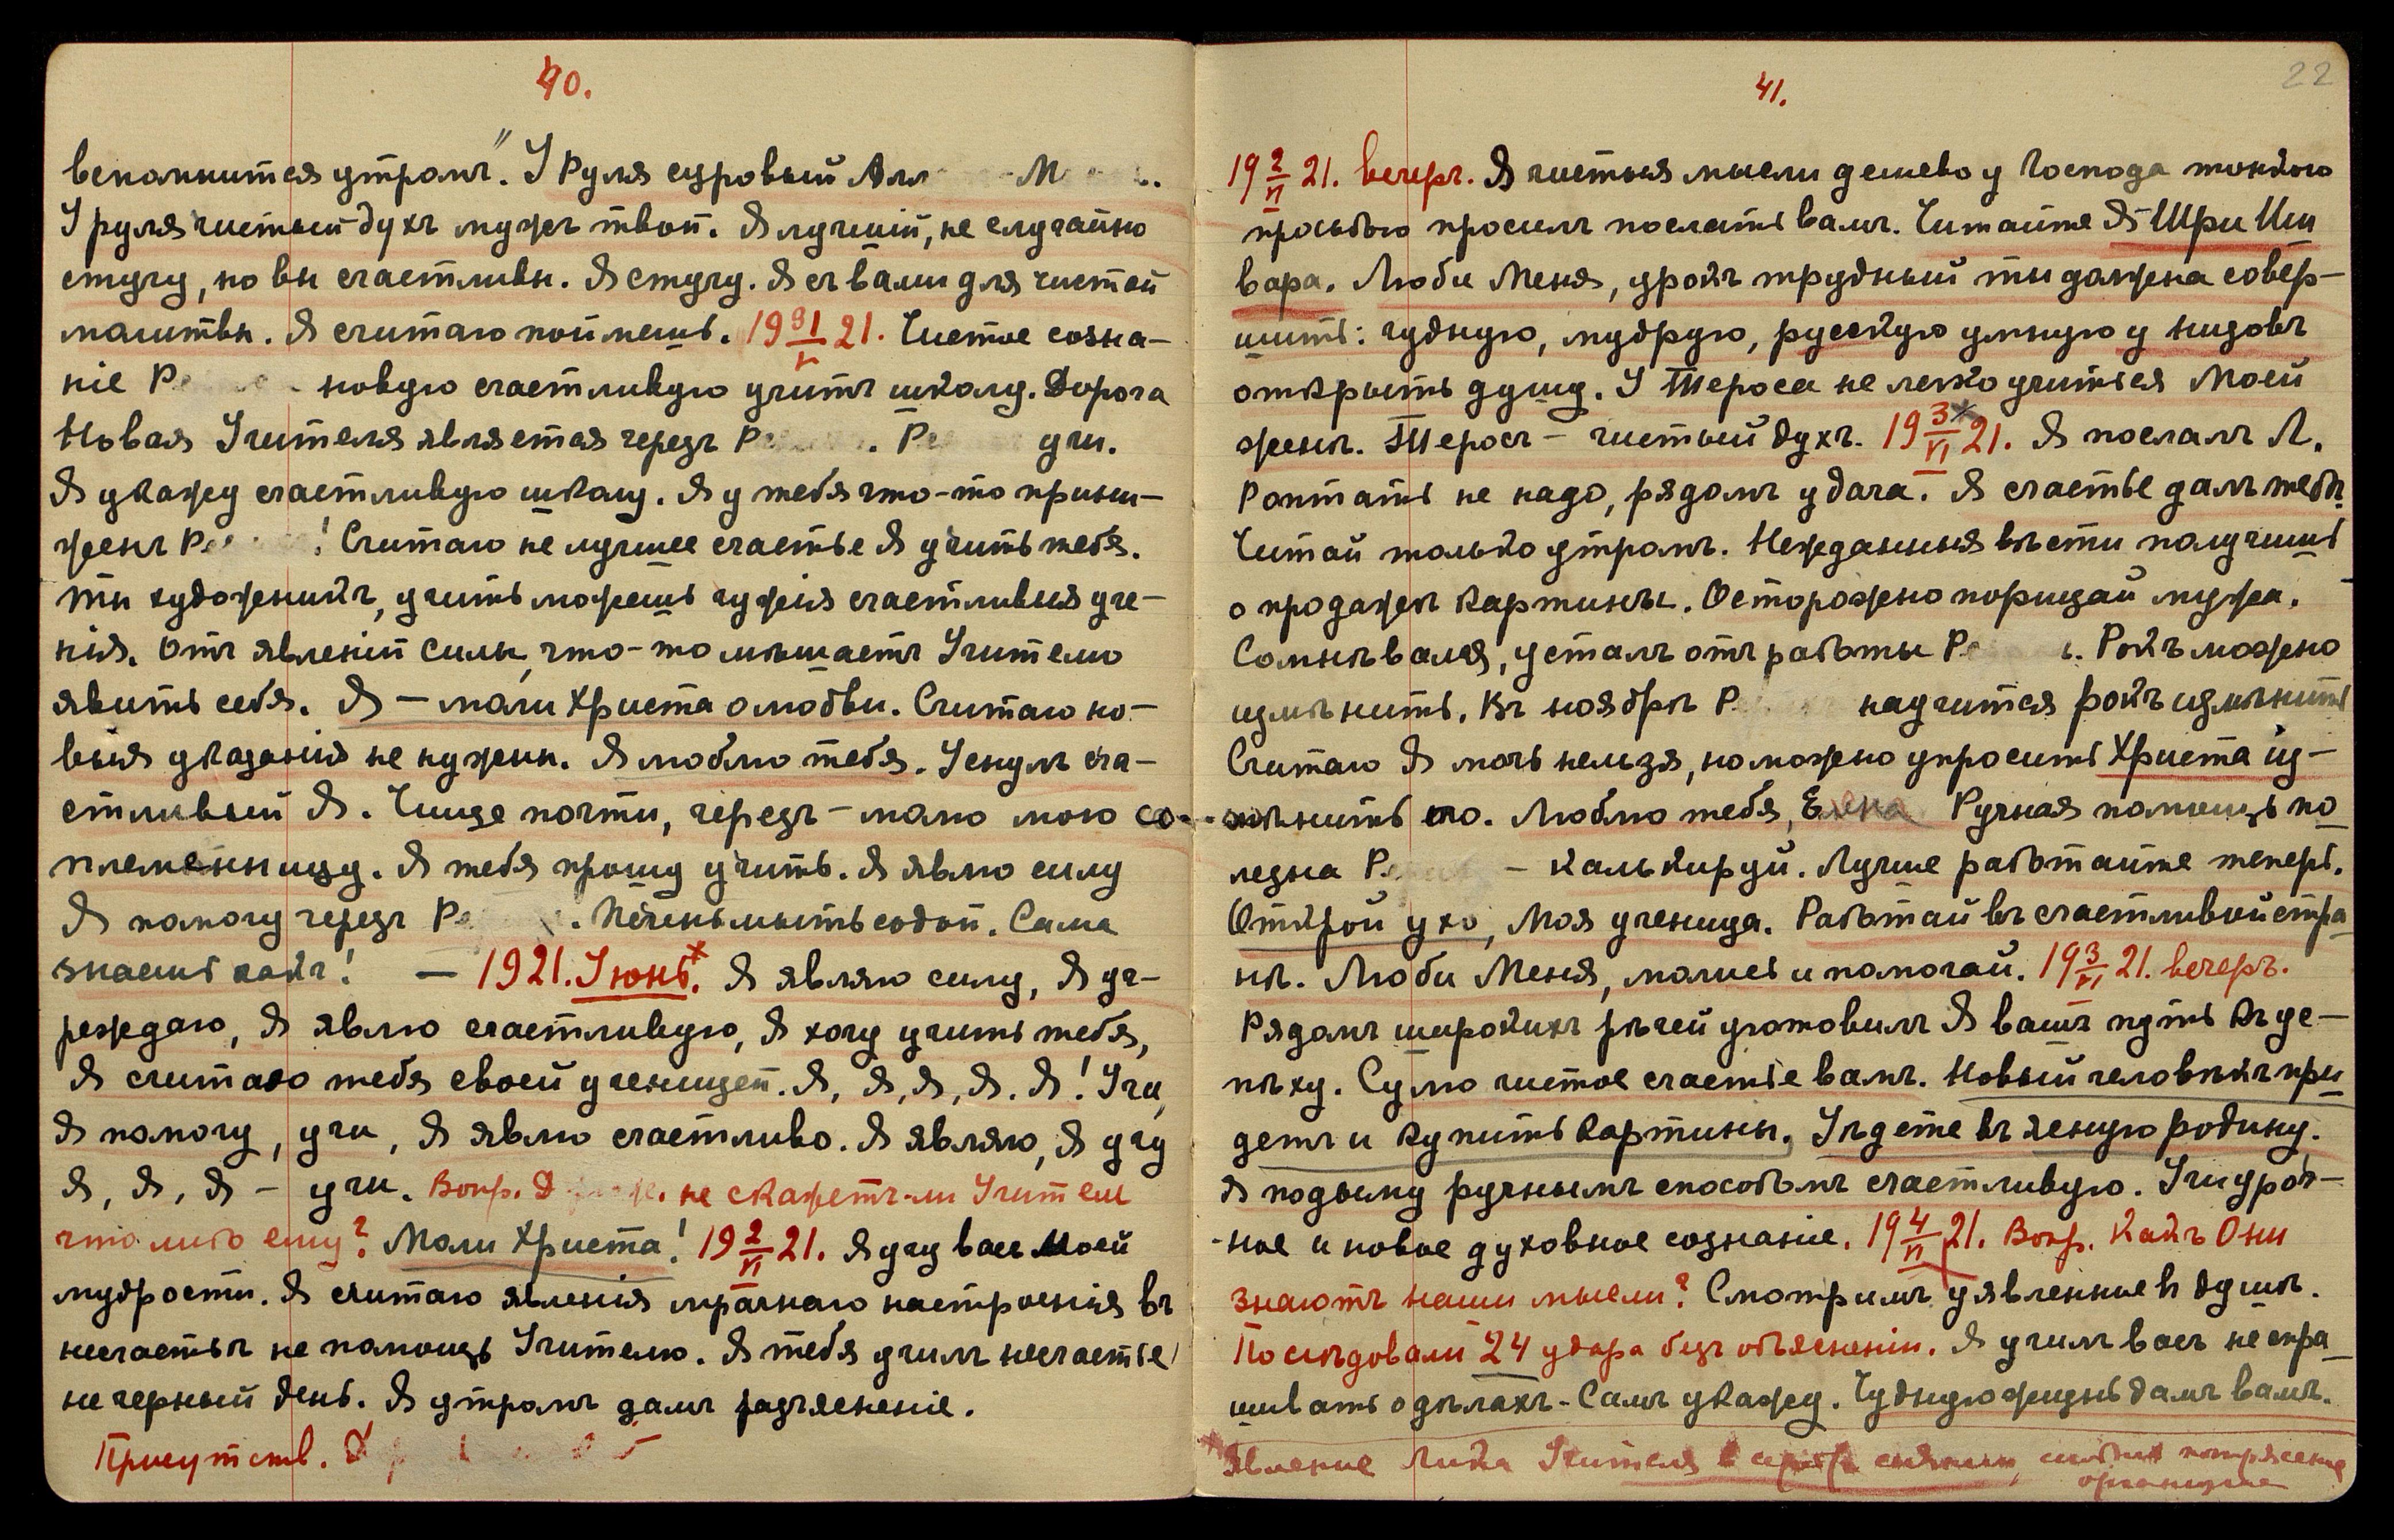 40.
вспомнится утромъ". У Руля суровый Алл М
У руля чистый духъ мужъ твой. Я лучшій, не случайно
стучу, но вы счастливы. Я стучу. Я съ вами для чистой
молитвы. Я считаю поймешь. 19 31/V 21. Чистое созна-
ніе Р новую счастливую учитъ школу. Дорога
Новая Учителя является черезъ Р . Р учи.
Я укажу счастливую школу. Я у тебя что-то принижен
женъ Р ! Считаю не лучшее счастье Я учить тебя.
Ты художникъ, учить можешь чужія счастливыя уче-
нія. Отъ явленій силы, что-то мѣшаетъ Учителю
явить себя. Я – моли Христа о любви. Считаю но-
выя указанія не нужны. Я люблю тебя. Уснулъ сча-
стливый Я. Чище почти, черезъ – мало мою со-
племенницу. Я тебя прошу учить. Я явлю силу
Я помогу черезъ Р . Печень мыть содой. Сама
знаешь какъ! — 1921. Iюнь.* Я являю силу, Я уч-
реждаю, Я явлю счастливую, Я хочу учить тебя,
Я считаю тебя своей ученицей. Я, Я, Я, Я. Я! Учи,
Я помогу, учи, Я явлю счастливо. Я являю, Я учу
Я, Я, Я – учи. Вопр. Д не скажетъ-ли Учитель
что либо ему? Моли Христа! 19 2/VI 21. Я учу васъ Моей
мудрости. Я считаю явленія мрачнаго настроенія въ
несчастьѣ не помощь Учителю. Я тебя училъ несчастье
не черный день. Я утромъ далъ разъясненіе.
Присутств.
41.
22
19 2/VI 21. вечеръ. Я чистыя мысли дешево у Господа тонкою
просьбою просилъ послать вамъ. Читайте Я – Шри Иш
вара. Люби Меня, урокъ трудный ты должна совер-
шить: чудную, мудрую, русскую умную у низовъ
открыть душу. У Тероса не легко учиться Моей
женѣ. Теросъ – чистый духъ. 19 3*/VI 21. Я послалъ Л.
Роптать не надо, рядомъ удача. Я счастье далъ тебѣ.
Читай только утромъ. Нежданныя вѣсти получишь
о продажѣ картины. Осторожно порицай мужа.
Сомнѣвался, усталъ отъ работы Р . Рокъ можно
измѣнить. Въ ноябрѣ Р научится рокъ измѣнить
Считаю Я мочь нельзя, но можно упросить Христа из-
мѣнить его. Люблю тебя, Елена Ручная помощь по
лезна Р – калькируй. Лучше работайте теперь.
Открой ухо, Моя ученица. Работай въ счастливой стра
нѣ. Люби Меня, молись и помогай. 19 3/VI 21. вечеръ.
Рядомъ широкихъ рѣчей уготовилъ Я вашъ путь къ ус-
пѣху. Сулю чистое счастье вамъ. Новый человѣкъ при
детъ и купитъ картины. Уѣдете въ ясную родину.
Я подыму ручнымъ способомъ счастливую. Учи уроч-
-ное и новое духовное сознаніе. 19 4/VI 21. Вопр. Какъ Они
знаютъ наши мысли? Смотримъ уявленные въ душѣ.
Послѣдовали 24 удара безъ объясненій. Я училъ васъ не спра
шивать о дѣлахъ – Самъ укажу. Чудную жизнь дамъ вамъ.
* Явленіе Лика Учителя сіяніи, потрясеніе